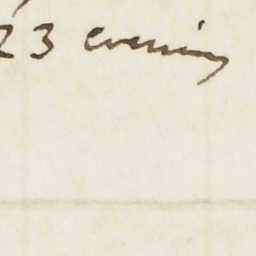 23 evening